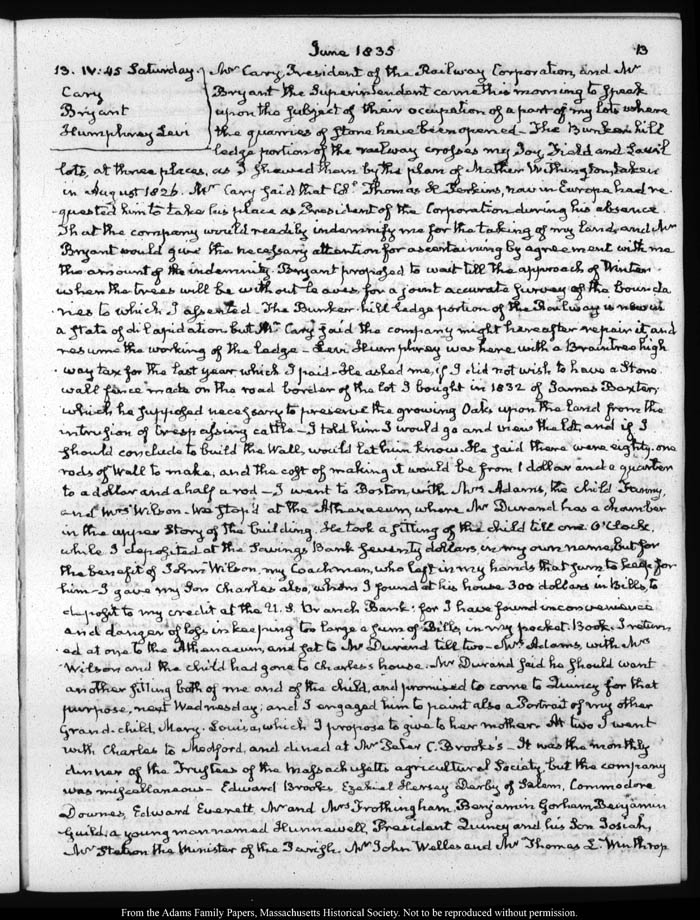 June 1835
13
13. IV:45 Saturday.
Cary
Bryant
Humphrey Levi
Mr Cary, President of the Railway Corporation, and Mr
Bryant the Superintendent came this morning to speak
upon the subject of their occupation of a part of my lots where
the quarries of stone have been opened — The Bunker hill
ledge portion of the railway crosses my Joy, Field and Savil
lots, at three places, as I shewed them by the plan of Mather Withington, taken
in August 1826. Mr Cary said that Col. Thomas H. Perkins, now in Europe had re-
quested him to take his place as President of the Corporation during his absence
That the company would readily indemnify me for the taking of my land, and Mr
Bryant would give the necessary attention for ascertaining by agreement with me
the amount of the indemnity. Bryant proposed to wait till the approach of Winter
when the trees will be without leaves for a joint accurate survey of the bounda-
ries to which I assented — The Bunker-hill ledge portion of the Railway is now in
a state of dilapidation but Mr Cary said the company might hereafter repair it and
resume the working of the ledge — Levi Humphrey was here with a Braintree high-
way tax for the last year which I paid — He asked me, if I did not wish to have a Stone
wall fence made on the road border of the lot I bought in 1832 of James Baxter,
which he supposed necessary to preserve the growing Oaks upon the land from the
intrusion of trespassing cattle — I told him I would go and view the lot, and if I
should conclude to build the Wall, would let him know. He said there were eighty-one
rods of Wall to make, and the cost of making it would be from 1 dollar and a quarter
to a dollar and a half a rod — I went to Boston, with Mrs Adams, the child Fanny,
and Mrs Wilson. We stop'd at the Athenaeum, where Mr Durand has a chamber
in the upper Story of the building. He took a sitting of the child till one O'Clock,
while I deposited at the Savings Bank seventy dollars, in my own name, but for
the benefit of John Wilson, my Coachman, who left in my hands that sum to keep for
him — I gave my Son Charles also, whom I found at his house 300 dollars in Bills, to
deposit to my credit at the U.S. Branch Bank: for I have found inconvenience
and danger of loss in keeping too large a sum of Bills, in my pocket-Book. I return-
ed at one to the Athenaeum, and sat to Mr Durand till two — Mrs Adams, with Mrs
Wilson and the child had gone to Charles's house. Mr Durand said he should want
another sitting both of me and of the child, and promised to come to Quincy for that
purpose, next Wednesday; and I engaged him to paint also a Portrait of my other
Grand-child, Mary-Louisa, which I propose to give to her mother. At two I went
with Charles to Medford, and dined at Mr Peter C. Brooks's — It was the monthly
dinner of the Trustees of the Massachusetts agricultural Society, but the company
was miscellaneous — Edward Brooks, Ezekiel Hersey Derby of Salem, Commodore
Downes, Edward Everett, Mr and Mrs Frothingham, Benjamin Gorham, Benjamin
Guild, a young man named Hunnewell, President Quincy and his Son Josiah,
Mr Stetson the Minister of the Parish. Mr John Welles and Mr Thomas L. Winthrop
From the Adams Family Papers, Massachusetts Historical Society. Not to be reproduced without permission.